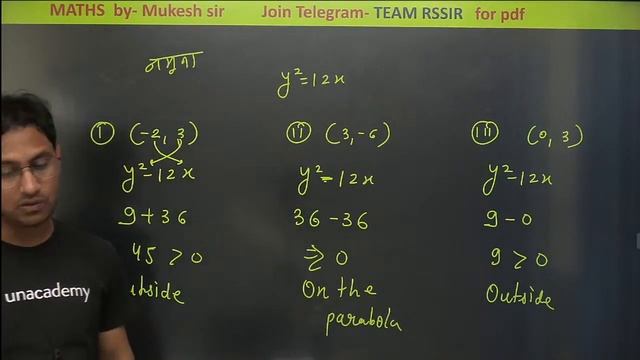 MATHS by- Mukesh sir Join Telegram- TEAM RSSIR for pdf
नमूना
y²=12x
(i) (-2, 3)
y²-12x
9+36
45 > 0
utside
(ii) (3,-6)
y²-12x
36-36
⇒ 0
On the
parabola
(iii) (0, 3)
y²-12x
9-0
9 > 0
Outside
unacademy